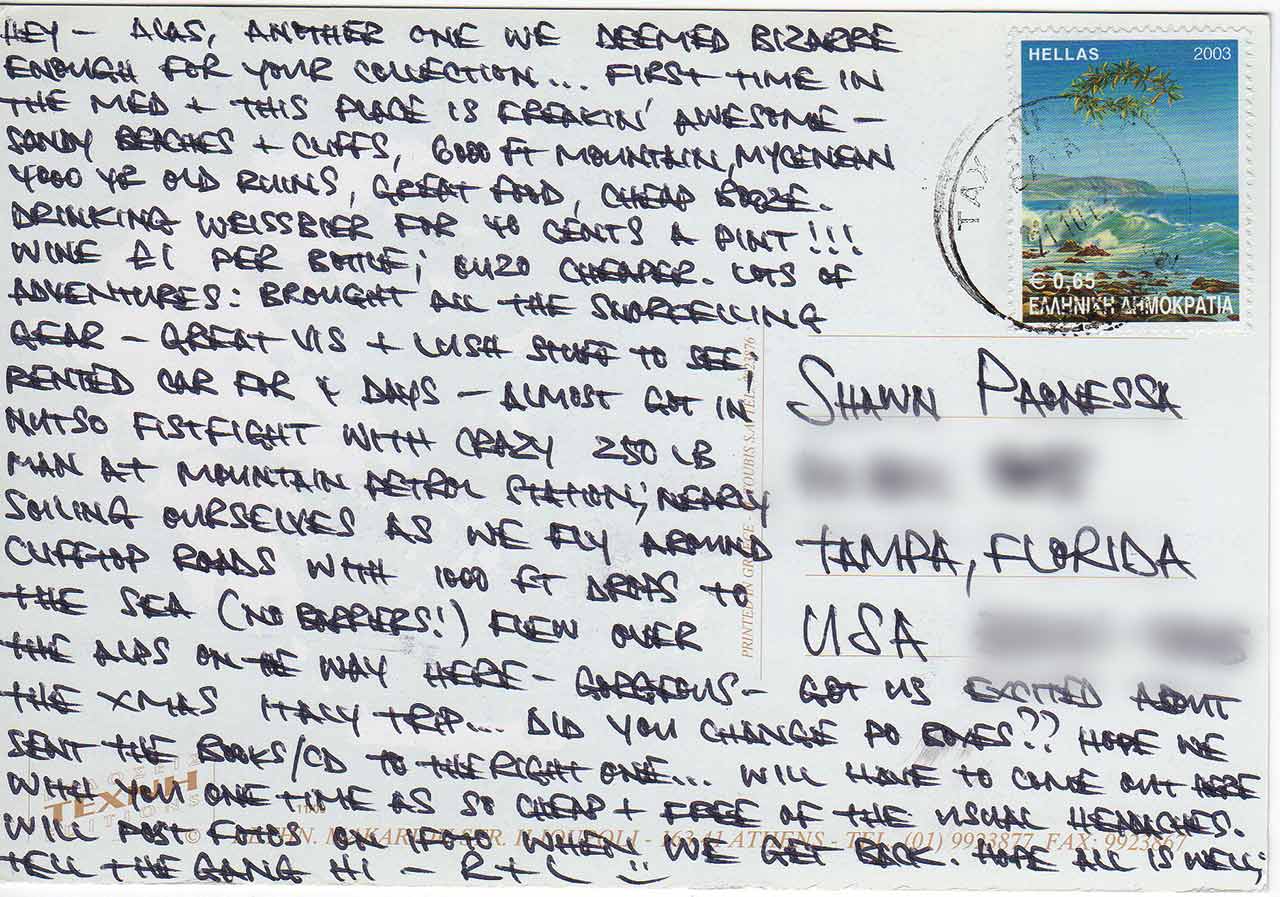 HEY - ALAS, ANOTHER ONE WE DEEMED BIZARRE
ENOUGH FOR YOUR COLLECTION... FIRST TIME IN
THE MED + THIS PLACE IS FREAKIN' AWESOME -
SANDY BEACHES + CLIFFS, 6000 FT MOUNTAIN, MYCENEAN
4000 YR OLD RUINS, GREAT FOOD, CHEAP BOOZE.
DRINKING WEISSBIER FOR 40 CENTS A PINT!!!
WINE £1 PER BOTTLE; OUZO CHEAPER. LOTS OF
ADVENTURES: BROUGHT ALL THE SNORKELLING
GEAR - GREAT VIS + LUSH STUFF TO SEE;
RENTED CAR FOR 4 DAYS - ALMOST GOT IN
NUTSO FISTFIGHT WITH CRAZY 250 LB
MAN AT MOUNTAIN PETROL STATION; NEARLY
SOILING OURSELVES AS WE FLY AROUND
CLIFFTOP ROADS WITH 1000 FT DROPS TO
THE SEA (NO BARRIERS!) FLEW OVER
THE ALPS ON THE WAY HERE - GORGEOUS - GOT US EXCITED ABOUT
THE XMAS ITALY TRIP... DID YOU CHANGE PO BOXES?? HOPE WE
SENT THE BOOKS/CD TO THE RIGHT ONE... WILL HAVE TO COME OUT HERE
WITH YOU ONE TIME AS SO CHEAP + FREE OF THE USUAL HEADACHES.
WILL POST FOTOS ON IFOTO WHEN WE GET BACK. HOPE ALL IS WELL;
TELL THE GANG HI - R + L
HELLAS 2003
€ 0,65
ΕΛΛΗΝΙΚΗ ΔΗΜΟΚΡΑΤΙΑ
SHAWN PAONESSA
TAMPA, FLORIDA
USA
PRINTED IN GREECE - TOUBIS S.A. TEL. 9923876
ΤΕΧΝΗ
163 41 ATHENS - TEL. (01) 9923877, FAX: 9923867